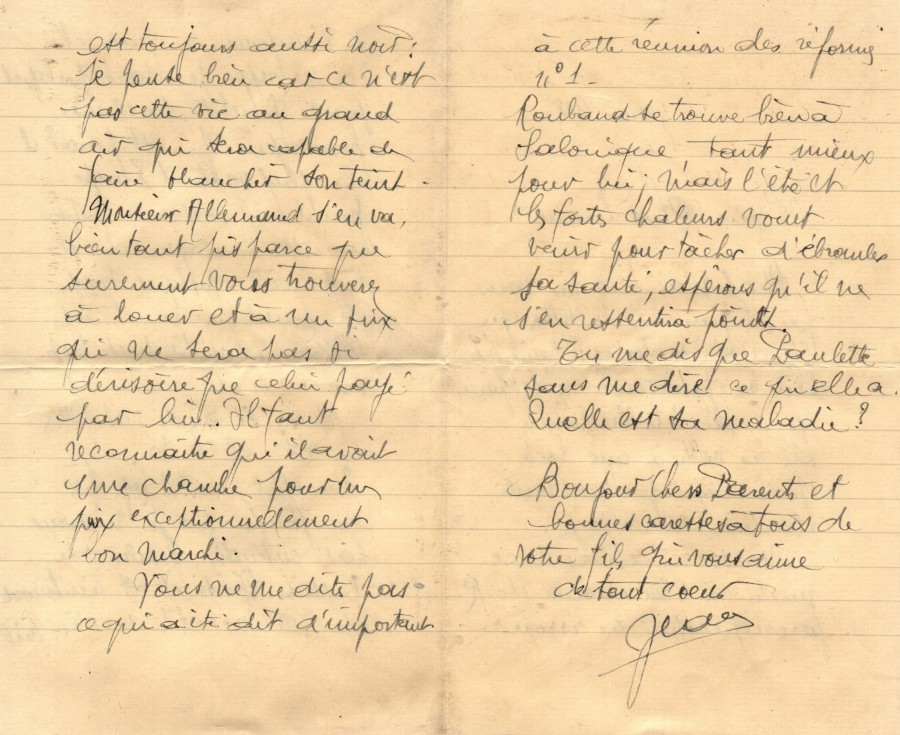 est toujours aussi noir;
je pense bien car ce n'est
pas cette vie au grand
air qui sera capable de
faire blanchir son teint.
Monsieur Allemand s'en va,
bien tant pis parce que
surement vous trouverez
à louer et à un prix
qui ne sera pas si
dérisoire que celui payé
par lui.. Il faut
reconnaitre qu'il avait
une chambre pour un
prix exceptionnellement
bon marché.
Vous ne me dites pas
ce qui a été dit d'important
à cette réunion des réformés
n° 1.
Roubaud se trouve bien à
Salonique tant mieux
pour lui; mais l'été et
les fortes chaleurs vont
venir pour tâcher d'ébranler
sa santé, espérons qu'il ne
s'en ressentira point.
Tu me dis que Paulette
sans me dire ce qu'elle a.
Quelle est sa maladie?
Bonjour Chers Parents et
bonnes caresses à tous de
votre fils qui vous aime
de tout coeur
Jean